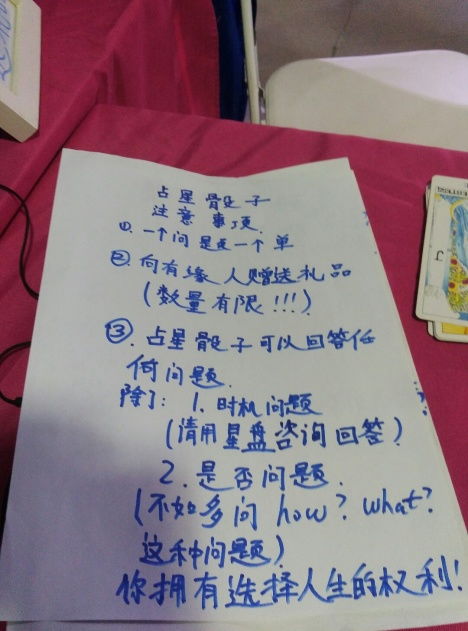 占星骰子
注意事项
①. 一个问题一个单
②. 向有缘人赠送礼品
(数量有限!!!)
③. 占星骰子可以回答任
何问题.
除了: 1. 时机问题
(请用星盘咨询回答)
2. 是否问题.
(不如多问 how? what?
这种问题)
你拥有选择人生的权利!